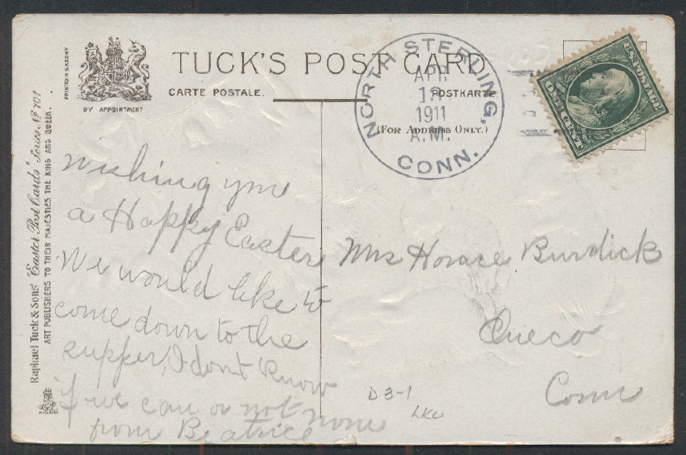 TUCK'S POST CARD
CARTE POSTALE.
POSTKARTE
(FOR ADDRESS ONLY.)
BY APPOINTMENT
Raphael Tuck & Sons' "Easter Post Cards" Series Nº 701
ART PUBLISHERS TO THEIR MAJESTIES THE KING AND QUEEN.
NORTH STERLING,
APR
1911
A.M.
CONN.
U.S. POSTAGE
ONE CENT
Wishing you
a Happy Easter
We would like to
come down to the
supper, I dont know
if we can or not now
from Beatrice
Mrs Horace Burdick
Oneco
Conn
D3-1